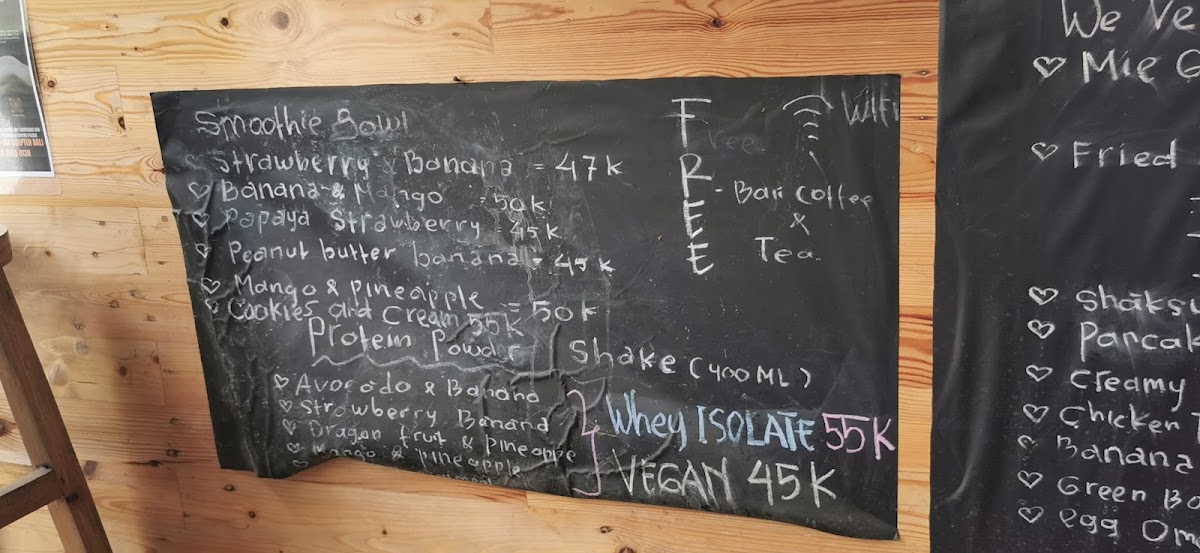 Smoothie Bowl
Strawberry & Banana = 47k
Banana & Mango = 50k
Papaya Strawberry = 45k
Peanut butter banana = 45k
Mango & pineapple = 50k
Cookies and Cream 55k
Protein Powder Shake (400ML)
Avocado & Banana
Strawberry Banana
Dragon fruit & pineappe
Mango & pineapple
Whey ISOLATE 55K
VEGAN 45K
FREE
WiFi
- Bali Coffee
&
Tea
We
Mie
Fried
Creamy
Chicken
Banana
Green
egg